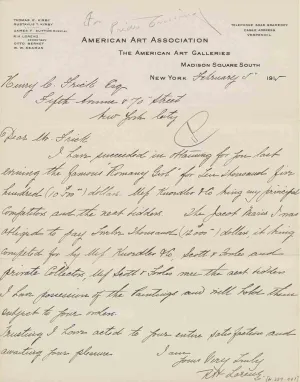 For Private [illegible]
THOMAS E. KIRBY
GUSTAVUS T. KIRBY
JAMES F. SUTTON
R.H. LORENZ
SECRETARY
OTTO BERNET
TELEPHONE 3346 GRAMERCY
CABLE ADDRESS
American Art Association
The American Art Galleries
Madison Square South
New York February 5 1915
Henry C. Frick Esq
Fifth Avenue & 70 Street
New York City
Dear Mr. Frick
I have succeeded in obtaining for you last
evening the famous "Romany Girl" for ten thousand five
hundred (10500) dollars Messrs Knoedler & Co being my principal
competitors and the next bidders The Jacob Maris I was
obliged to pay Twelve Thousand (12000) dollars it being
competed for by Messrs Knoedler & Co, Scott & Fowles and
private Collectors, Messrs Scott & Fowles were the next bidders
I have possession of the Paintings and will hold them
subject to your orders.
Trusting I have acted to your entire satisfaction and
awaiting your pleasure
I am
Yours Very Truly
R H Lorenz